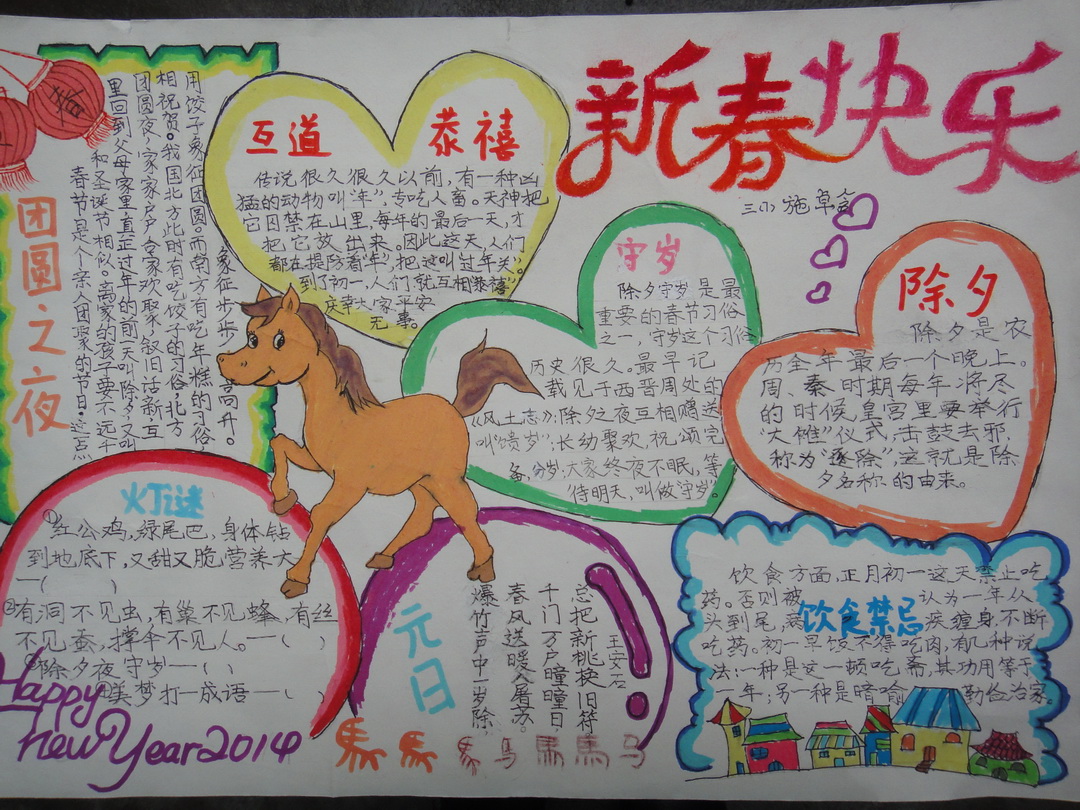 新春快乐
三(1)施卓言
春
团圆之夜
春节是个亲人团聚的节日。这点
和圣诞节相似。离家的孩子要不远千
里回到父母家里。真正过年的前一天叫除夕，又叫
团圆夜，家家户户合家欢聚，叙旧话新，互
相祝贺。我国北方此时有吃饺子的习俗，北方
用饺子象征团圆。而南方有吃年糕的习俗，
象征步步高升。
互道恭禧
传说很久很久以前，有一种凶
猛的动物叫“年”，专吃人畜。天神把
它囚禁在山里，每年的最后一天，才
把它放出来。因此这天，人们
都在提防着“年”，把这叫“过年关”。
到了初一，人们就互相“恭禧”，
庆幸大家平安
无事。
守岁
除夕守岁是最
重要的春节习俗
之一，守岁这个习俗
历史很久。最早记
载见于西晋周处的
《风土志》：除夕之夜互相赠送
叫“馈岁”，长幼聚欢，祝颂完
备，分岁，大家终夜不眠，等
待明天，叫做“守岁”。
除夕
除夕是农
历全年最后一个晚上。
周、秦时期每年将尽
的时候，皇宫里要举行
“大傩”仪式，击鼓去邪，
称为“逐除”，这就是除
夕名称的由来。
灯谜
①红公鸡，绿尾巴，身体钻
到地底下，又甜又脆营养大
—( )
②有洞不见虫，有巢不见蜂，有丝
不见蚕，撑伞不见人。—( )
③除夕夜守岁—( )
④美梦打一成语—( )
Happy
new Year 2014
元日
王安石
爆竹声中一岁除，
春风送暖入屠苏。
千门万户曈曈日，
总把新桃换旧符
馬
马
馬
馬
马
饮食禁忌
饮食方面，正月初一这天禁止吃
药。否则被认为一年从
头到尾，疾缠身，不断
吃药。初一早饭不得吃肉，有几种说
法：一种是这一顿吃斋，其功用等于
一年，另一种是暗喻勤俭治家。